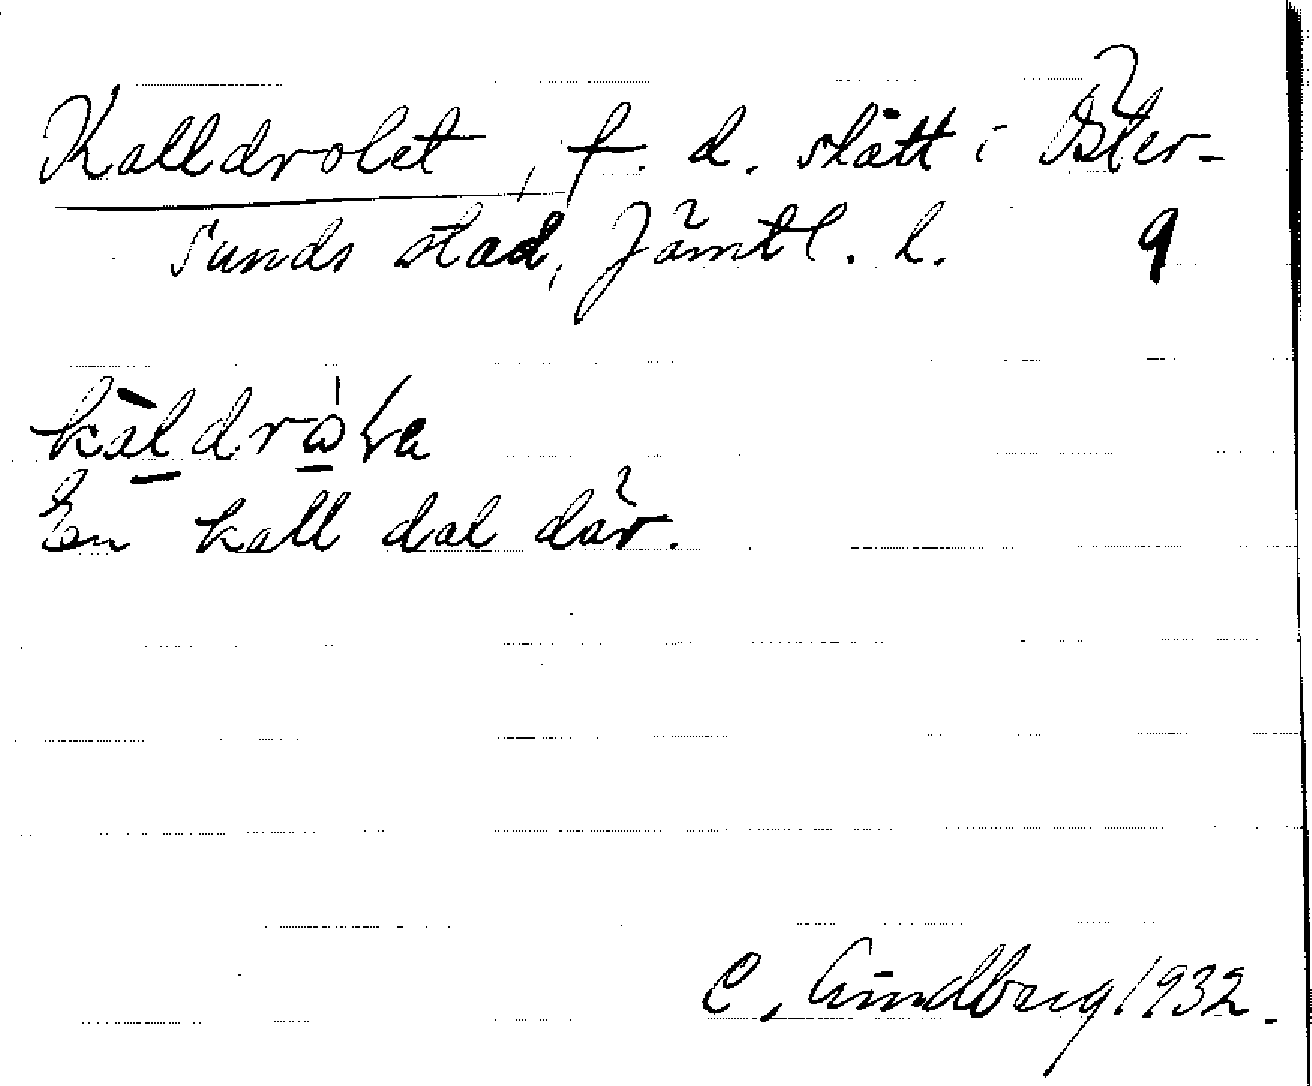 Kalldrolet, f. d. slått i Öster-
sunds stad, Jämtl. l. 9
En kall dal där.
C. Lindberg 1932.